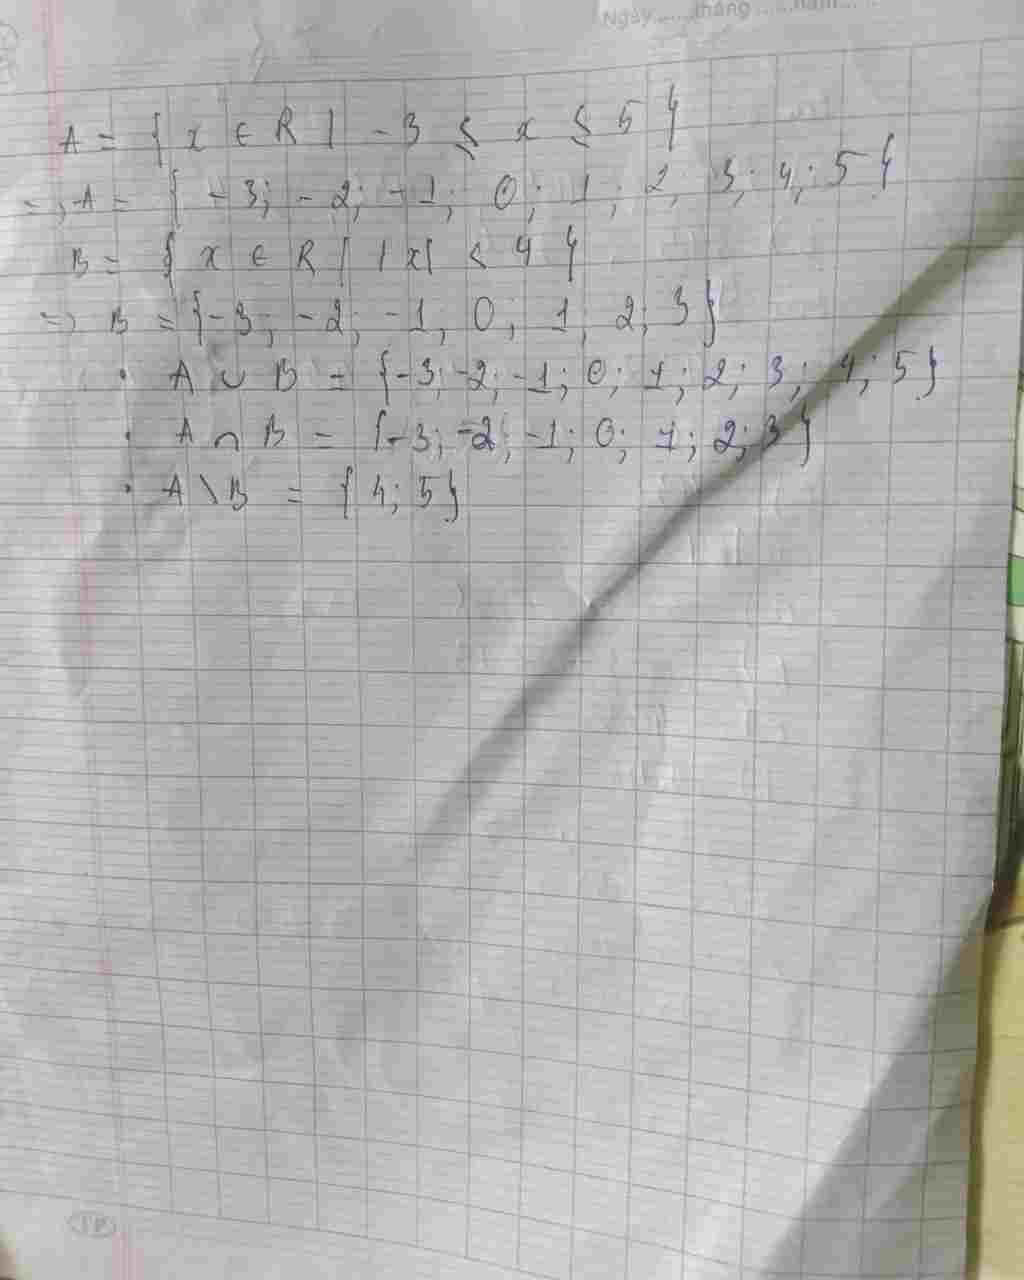 Ngày......tháng......năm......
A = { x ∈ R | -3 ≤ x ≤ 5 }
=> A = { -3; -2; -1; 0; 1; 2; 3; 4; 5 }
B = { x ∈ R | |x| < 4 }
=> B = {-3; -2; -1, 0, 1, 2; 3}
• A ∪ B = {-3; -2; -1; 0; 1; 2; 3; 4; 5}
• A ∩ B = {-3; -2; -1; 0; 1; 2; 3}
• A \ B = { 4; 5 }